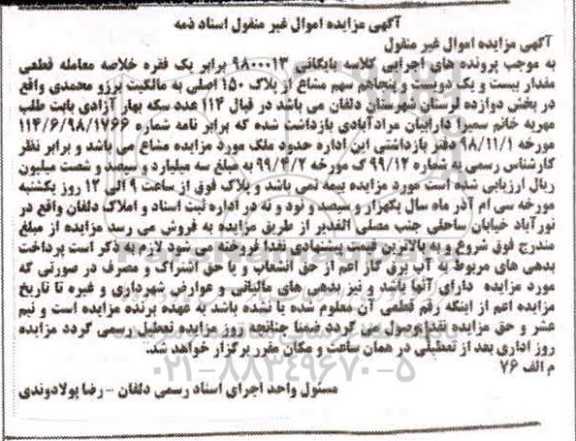 آگهی مزایده اموال غیر منقول اسناد ذمه
آگهی مزایده اموال غیر منقول
به موجب پرونده های اجرایی کلاسه بایگانی ۹۸۰۰۰۱۳ برابر یک فقره خلاصه معامله قطعی
مقدار بیست و یک دویست و پنجاهم سهم مشاع از پلاک ۱۵۰ اصلی به مالکیت برزو محمدی واقع
در بخش دوازده لرستان شهرستان دلفان می باشد در قبال ۱۱۴ عدد سکه بهار آزادی بابت طلب
مهریه خانم سمیرا دارابیان مرادآبادی بازداشت شده که برابر نامه شماره ۱۱۴/۶/۹۸/۱۷۶۶
مورخه ۹۸/۱۱/۱ دفتر بازداشتی این اداره حدود ملک مورد مزایده مشاع می باشد و برابر نظر
کارشناس رسمی به شماره ۹۹/۱۲ ک مورخه ۹۹/۴/۲ به مبلغ سه میلیارد و سیصد و شصت میلیون
ریال ارزیابی شده است مورد مزایده بیمه نمی باشد و پلاک فوق از ساعت ۹ الی ۱۲ روز یکشنبه
مورخه سی ام آذر ماه سال یکهزار و سیصد و نود و نه در اداره ثبت اسناد و املاک دلفان واقع در
نورآباد خیابان ساحلی جنب مصلی الغدیر از طریق مزایده به فروش می رسد مزایده از مبلغ
مندرج فوق شروع و به بالاترین قیمت پیشنهادی نقدا فروخته می شود لازم به ذکر است پرداخت
بدهی های مربوط به آب برق گاز اعم از حق انشعاب و یا حق اشتراک و مصرف در صورتی که
مورد مزایده دارای آنها باشد و نیز بدهی های مالیاتی و عوارض شهرداری و غیره تا تاریخ
مزایده اعم از اینکه رقم قطعی آن معلوم شده یا نشده باشد به عهده برنده مزایده است و نیم
عشر و حق مزایده نقدا وصول می گردد ضمنا چنانچه روز مزایده تعطیل رسمی گردد مزایده
روز اداری بعد از تعطیلی در همان ساعت و مکان مقرر برگزار خواهد شد.
م الف ۷۶
۰۲۱-۸۸۳۴۹۶۷۰-۵
مسئول واحد اجرای اسناد رسمی دلفان - رضا پولادوندی